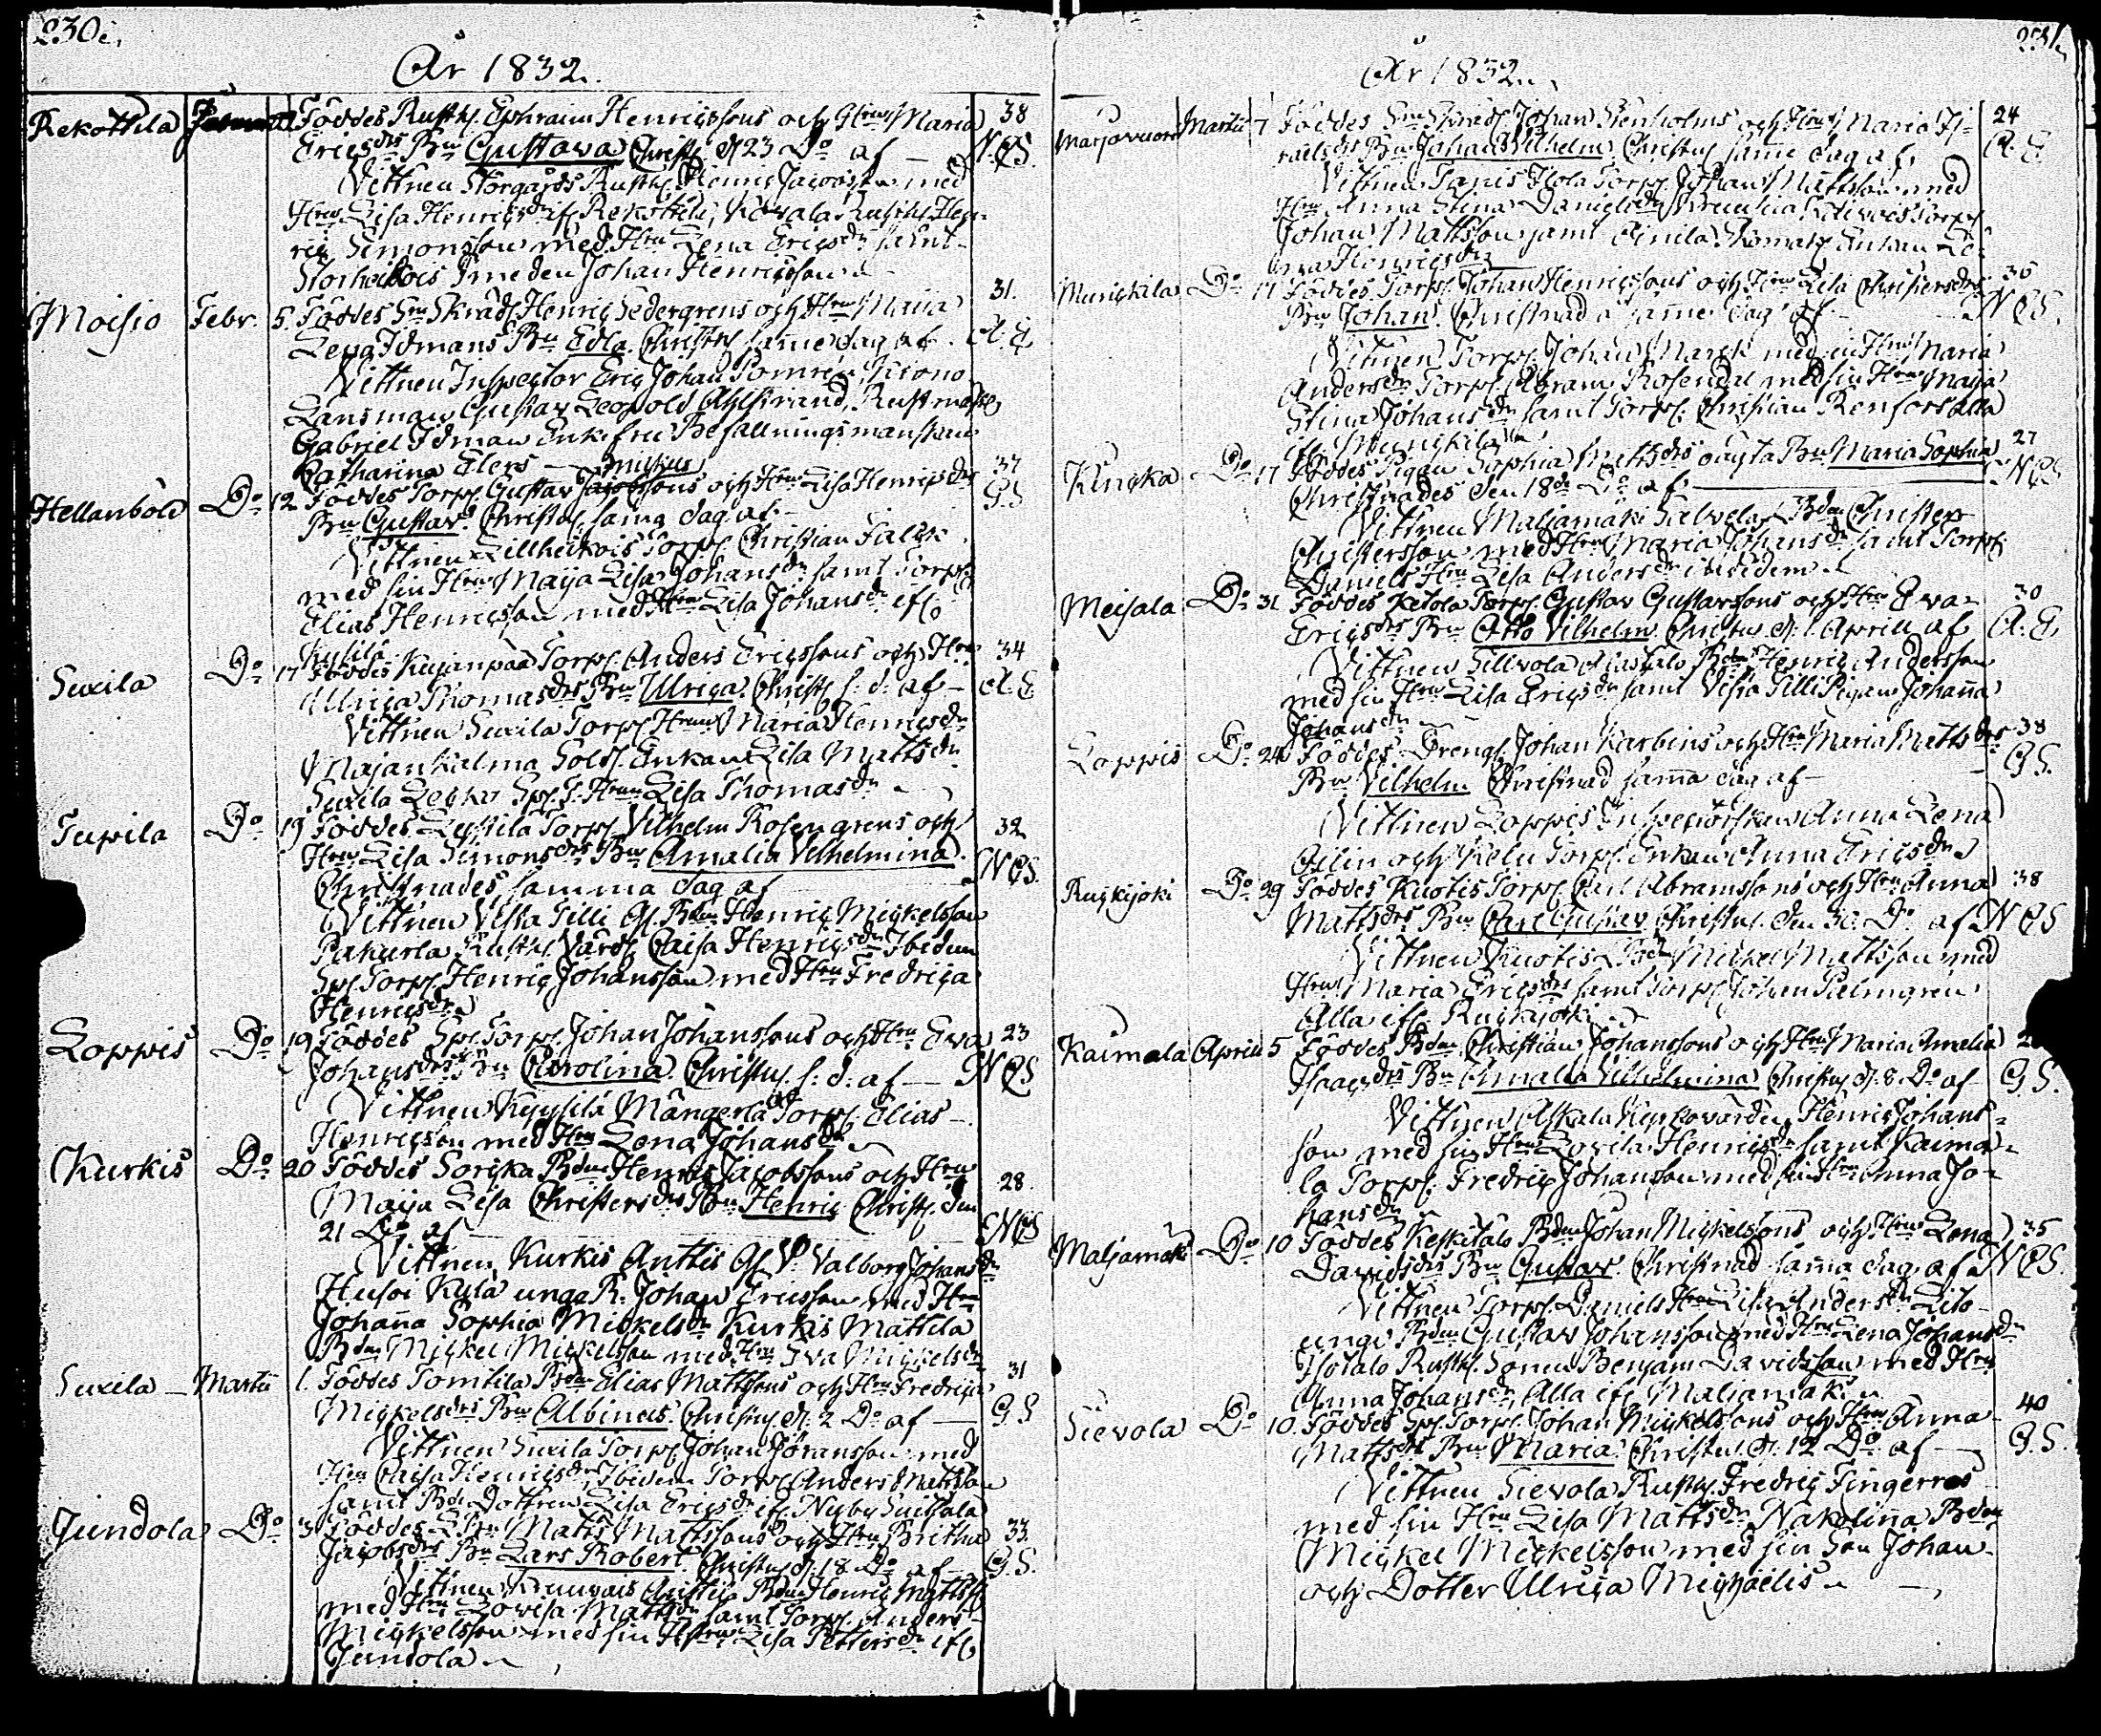 230.
År 1832.
Rekottila Föddes Rusth. Ephraim Henricssons och Hru Maria 38
Ericsdrs Bn Gustava Christs d. 23 Do af — NCS.
Vittnen Storgårds Rusth. Henric Jacobsson med
Hru Lisa Henricsdr if. Rekottila, Rusth. Hen-
ric Simonsson med Hru Lena Ericsdr samt
Storheikois Smeden Johan Henricsson
Moisio Febr. 5. Föddes Sn Skräd. Henric Sedergrens och Hru Maria 31.
Lena Idmans Bn Edla Christs samme dag af A. E.
Vittnen Inspector Eric Johan Krono
Länsman Gustav Leopold Ahlstrand, Rustmäst.
Gabriel Idman Enkefru Befallningsmanskan
Catharina Elers — Mickels
Hellanböle Do 12 Föddes Torp. Gustav Jacobssons och Hru Lisa Henricsdrs 37
Bn Gustav. Christs. samma dag af — G.S
Vittnen Lillheikois Torp. Christian Falck
med sin Hru Maija Lisa Johansdr samt Torp.
Elias Henricsson med Hru Lisa Johansdr if.
Kylilä
Suxila Do 17 Föddes Kujanpää Torp. Anders Ericssons och Hru 34
Ulrica Thomasdrs Bn Ulrica. Christs s. d. af — A. E
Vittnen Suxila Torp. Hrun Maria Henricsdr
Majankalma Sold. Enkan Lisa Mattsdr
Suxila Spl. T. Hrun Lisa Thomasdr
Tupila Do 19 Föddes Torp. Vilhelm Rosengrens och 32
Hru Lisa Simonsdrs Bn Amalia Vilhelmina.
Christnades samma dag af NCS.
Vittnen Vista Tilli Gl. Bdn Henric Mickelsson
Pakurla Rusth. Värd. Caisa Henricsdr Ibidem
Spl Torp. Henric Johansson med Hru Fredrica
Henricsdr
Loppis Do 19 Föddes Spl Torp. Johan Johanssons och Hru Eva 23
Johansdrs Bn Carolina. Christs. s. d. af — NCS
Vittnen Kyysilä Torp. Elias
Henricsson med Hru Lena Johansdr
Kurkis Do 20 Föddes Sorcka Bdn Henric Jacobssons och Hru
Maija Lisa Christersdrs Bn Henric Christs. den 28.
21 Do af NCS
Vittnen Kurkis Anttis Gl. V. Valborg Johansdr
Husoi Kylä unga R. Johan Ericsson med Hru
Johanna Sophia Mickelsdr Kurkis Mattila
Bdn Mickel Mickelsson med Hru Eva Mickelsdr
Suxila — Martii 1. Föddes Tomtila Bdn Elias Mattssons och Hru Fredrica 31
Mickelsdrs Bn Albinus. Christs. d. 2 Do af — G S
Vittnen Suxila Torp. Johan Göransson med
Hru Caisa Henricsdr, Ibidem Torp. Anders Mattsson
samt Bd. Dottren Lisa Ericsdr if. Nyby Suittala
Jundola Do 3 Föddes Matts Mattssons och Hru Britha 33.
Jacobsdrs Bn Lars Robert. Christs. d. 18 Do af — G.S.
Vittnen Anttis Bdn Henric Mattss.
med Hru Lovisa Mattsdr samt Torp. Anders
Mickelsson med sin Hru Lisa Pettersdr if.
Jundola
231.
År 1832.
Marjavuori Martii 7 Föddes Sn Skräd. Johan Stenholms och Hru Maria Is- 24
raelsdrs Bn Johan Vilhelm. Christs samme dag af A. E.
Vittnen Tanis Isola Torp. Johan Mattsson med
Hru Anna Stina Danielsdr Torp.
Johan Mattsson samt Enkan Le-
na Henricsdr
Munickila Do 11 Föddes Torp. Johan Henricssons och Hru Lisa Christersdrs 36
Bn Johan. Christnad samme dag af NCS.
Vittnen Torp. Johan Marck med sin Hru Maria
Andersdr Torp. Abram Rosendal med sin Hru Maija
Stina Johansdr samt Torp. Christian Renfors alla
if. Munickila
Klucka Do 17 Föddes Pigan Sophia Mattsdrs oäkta Bn Maria Sophia 27
Christnades den 18de Do af — NCS
Vittnen Maljamäki Bdn Christer
Christersson med Hru Maria Johansdr samt Torp.
Daniels Hru Lisa Andersdr ibidem
Meisala Do 31 Föddes Ketola Torp. Gustav Gustavssons och Hru Eva 30
Ericsdrs Bn Otto Vilhelm. Christs. d. 1. Aprill af A. E.
Vittnen Sillvola Bdn Henric Andersson
med sin Hru Lisa Ericsdr samt Vista Tilli Pigan Johanna
Johansdr
Loppis Do 24 Föddes Dreng. Johan Karbins och Hru Maria Mattsdrs 38
Bn Vilhelm Christnad samma dag af — G S.
Vittnen Loppis Inspectorskan Anna Lena
och Torp. Enkan Anna Ericsdr
Ruckijoki Do 29 Föddes Kustis Torp. Carl Abramssons och Hru Anna 38
Mattsdrs Bn Carl Gustav Christs. den 30. Do af NCS
Vittnen Kustis Bdn Mickel Mattsson med
Hru Maria Ericsdr samt Torp. Johan Palmgren
Alla if. Ruckijoki
Kaimala Aprill 5 Föddes Bdn Christian Johanssons och Hru Maria Amalia
Isaacsdrs Bn Amalia Vilhelmina Christs. d. 8. Do af G. S.
Vittnen Askala Kyrkovärden Henric Johans-
son med sin Hru Lovisa Henricsdr samt Kaima-
la Torp. Fredric Johansson med sin Hru Anna Jo-
hansdr
Maljamäki Do 10 Föddes Keskitalo Bdn Johan Mickelssons och Hru Lena 35
Davidsdrs Bn Gustav. Christnad samma dag af NCS.
Vittnen Torp. Daniels Hru Lisa Andersdr
unge Bdn Gustav Johansson med Hru Lena Johansdr
Isotalo Rusth. Sonen Benjam. Davidsson med Hru
Anna Johansdr, Alla if. Maljamäki
Sievola Do 10. Föddes Spl. Torp. Johan Mickelssons och Hru Anna 40
Mattsdrs Bn Maria. Christs. d. 12 Do af — G. S.
Vittnen Sievola Rusth. Fredric Fingerroos
med sin Hru Lisa Mattsdr Nakolinna Bdn
Mickel Mickelsson med sin Son Johan
och Dotter Ulrica Michaelis